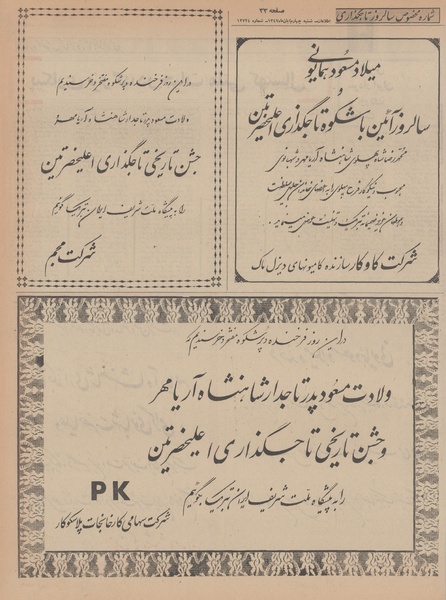 شماره مخصوص سالروز تاجگذاری
صفحه ۳۳
میلاد مسعود همایونی
و
سالروز آئین باشکوه تاجگذاری اعلیحضرتین
شرکت کاوکار سازنده کامیونهای دیزل ماک
در این روز فرخنده و پرشکوه مفتخر و خرسندیم
ولادت مسعود پدر تاجدار شاهنشاه آریامهر و
جشن تاریخی تاجگذاری اعلیحضرتین
را به پیشگاه ملت شریف ایران تبریک گوئیم
شرکت
در این روز فرخنده و پرشکوه مفتخر و خرسندیم که
ولادت مسعود پدر تاجدار شاهنشاه آریامهر
و جشن تاریخی تاجگذاری اعلیحضرتین
را به پیشگاه ملت شریف ایران تبریک بگوئیم
PK
شرکت سهامی کارخانجات پلاسکوکار